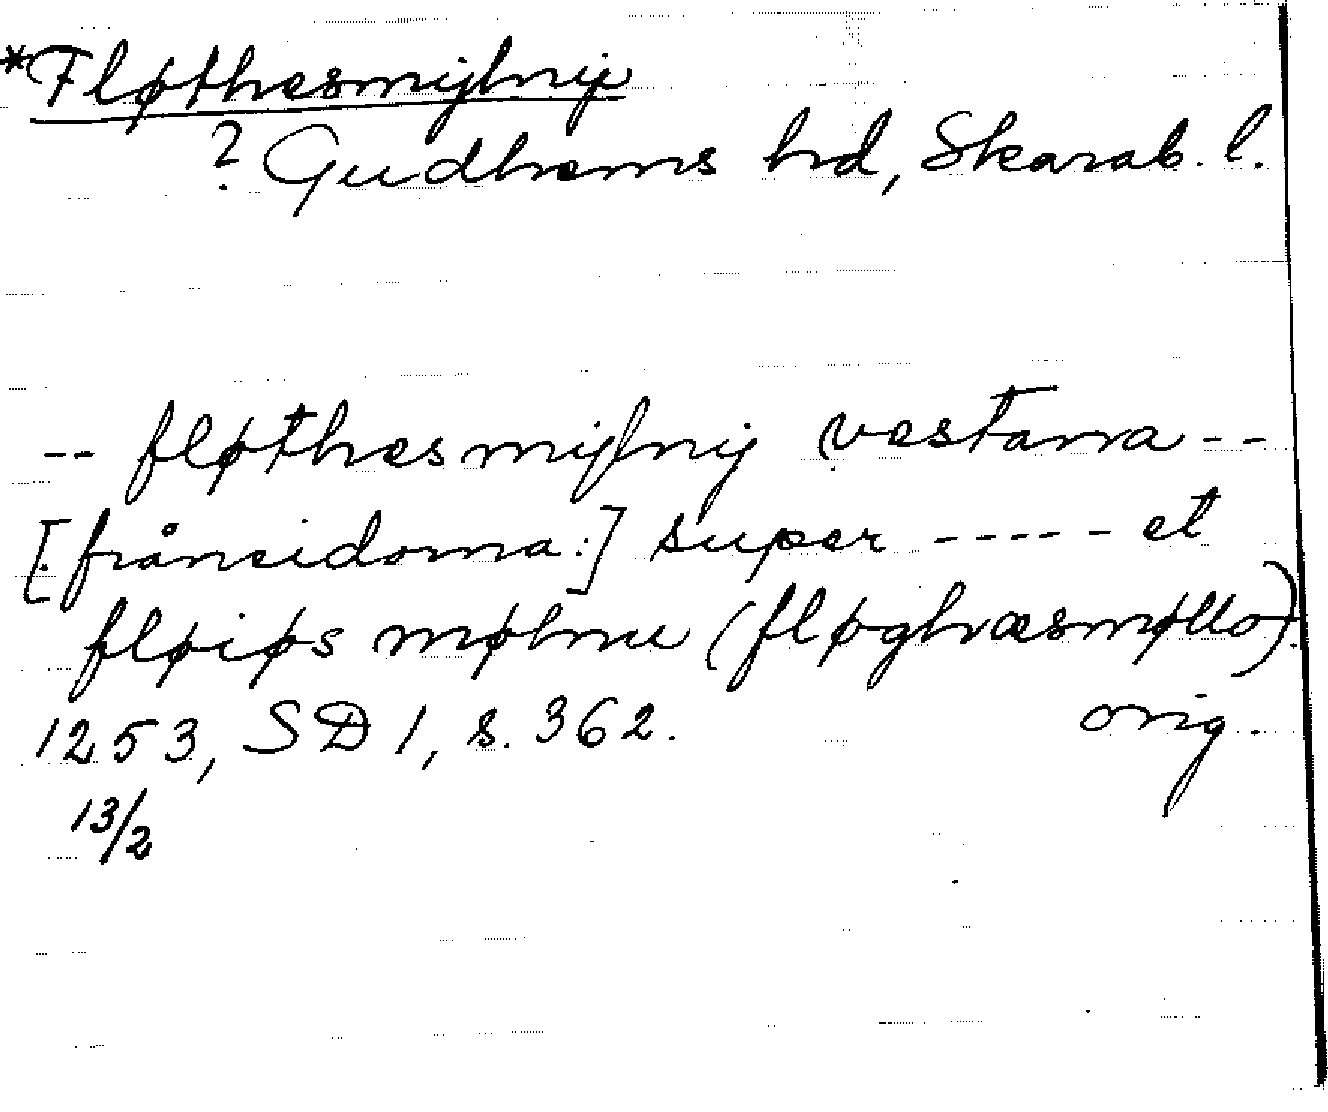 *Fløthesmijlnij
? Gudhems hrd, Skarab. l.
-- fløthesmijlnij vestarra --
[frånsidorna:] super ----- et
fløiþs mølnu (fløghæsmøllo).
1253, SD 1, s. 362. orig.
13/2